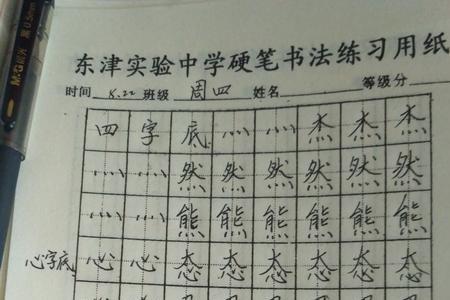 M&G 晨光 黑 0.5mm
东津实验中学硬笔书法练习用纸
时间 8.22 班级 周四 姓名 等级分
四 字 底 灬 灬 杰 杰 杰
灬 灬 然 然 然 然 然 然
灬 灬 熊 熊 熊 熊 熊 熊
心字底 心 心 态 态 态 态 态 态